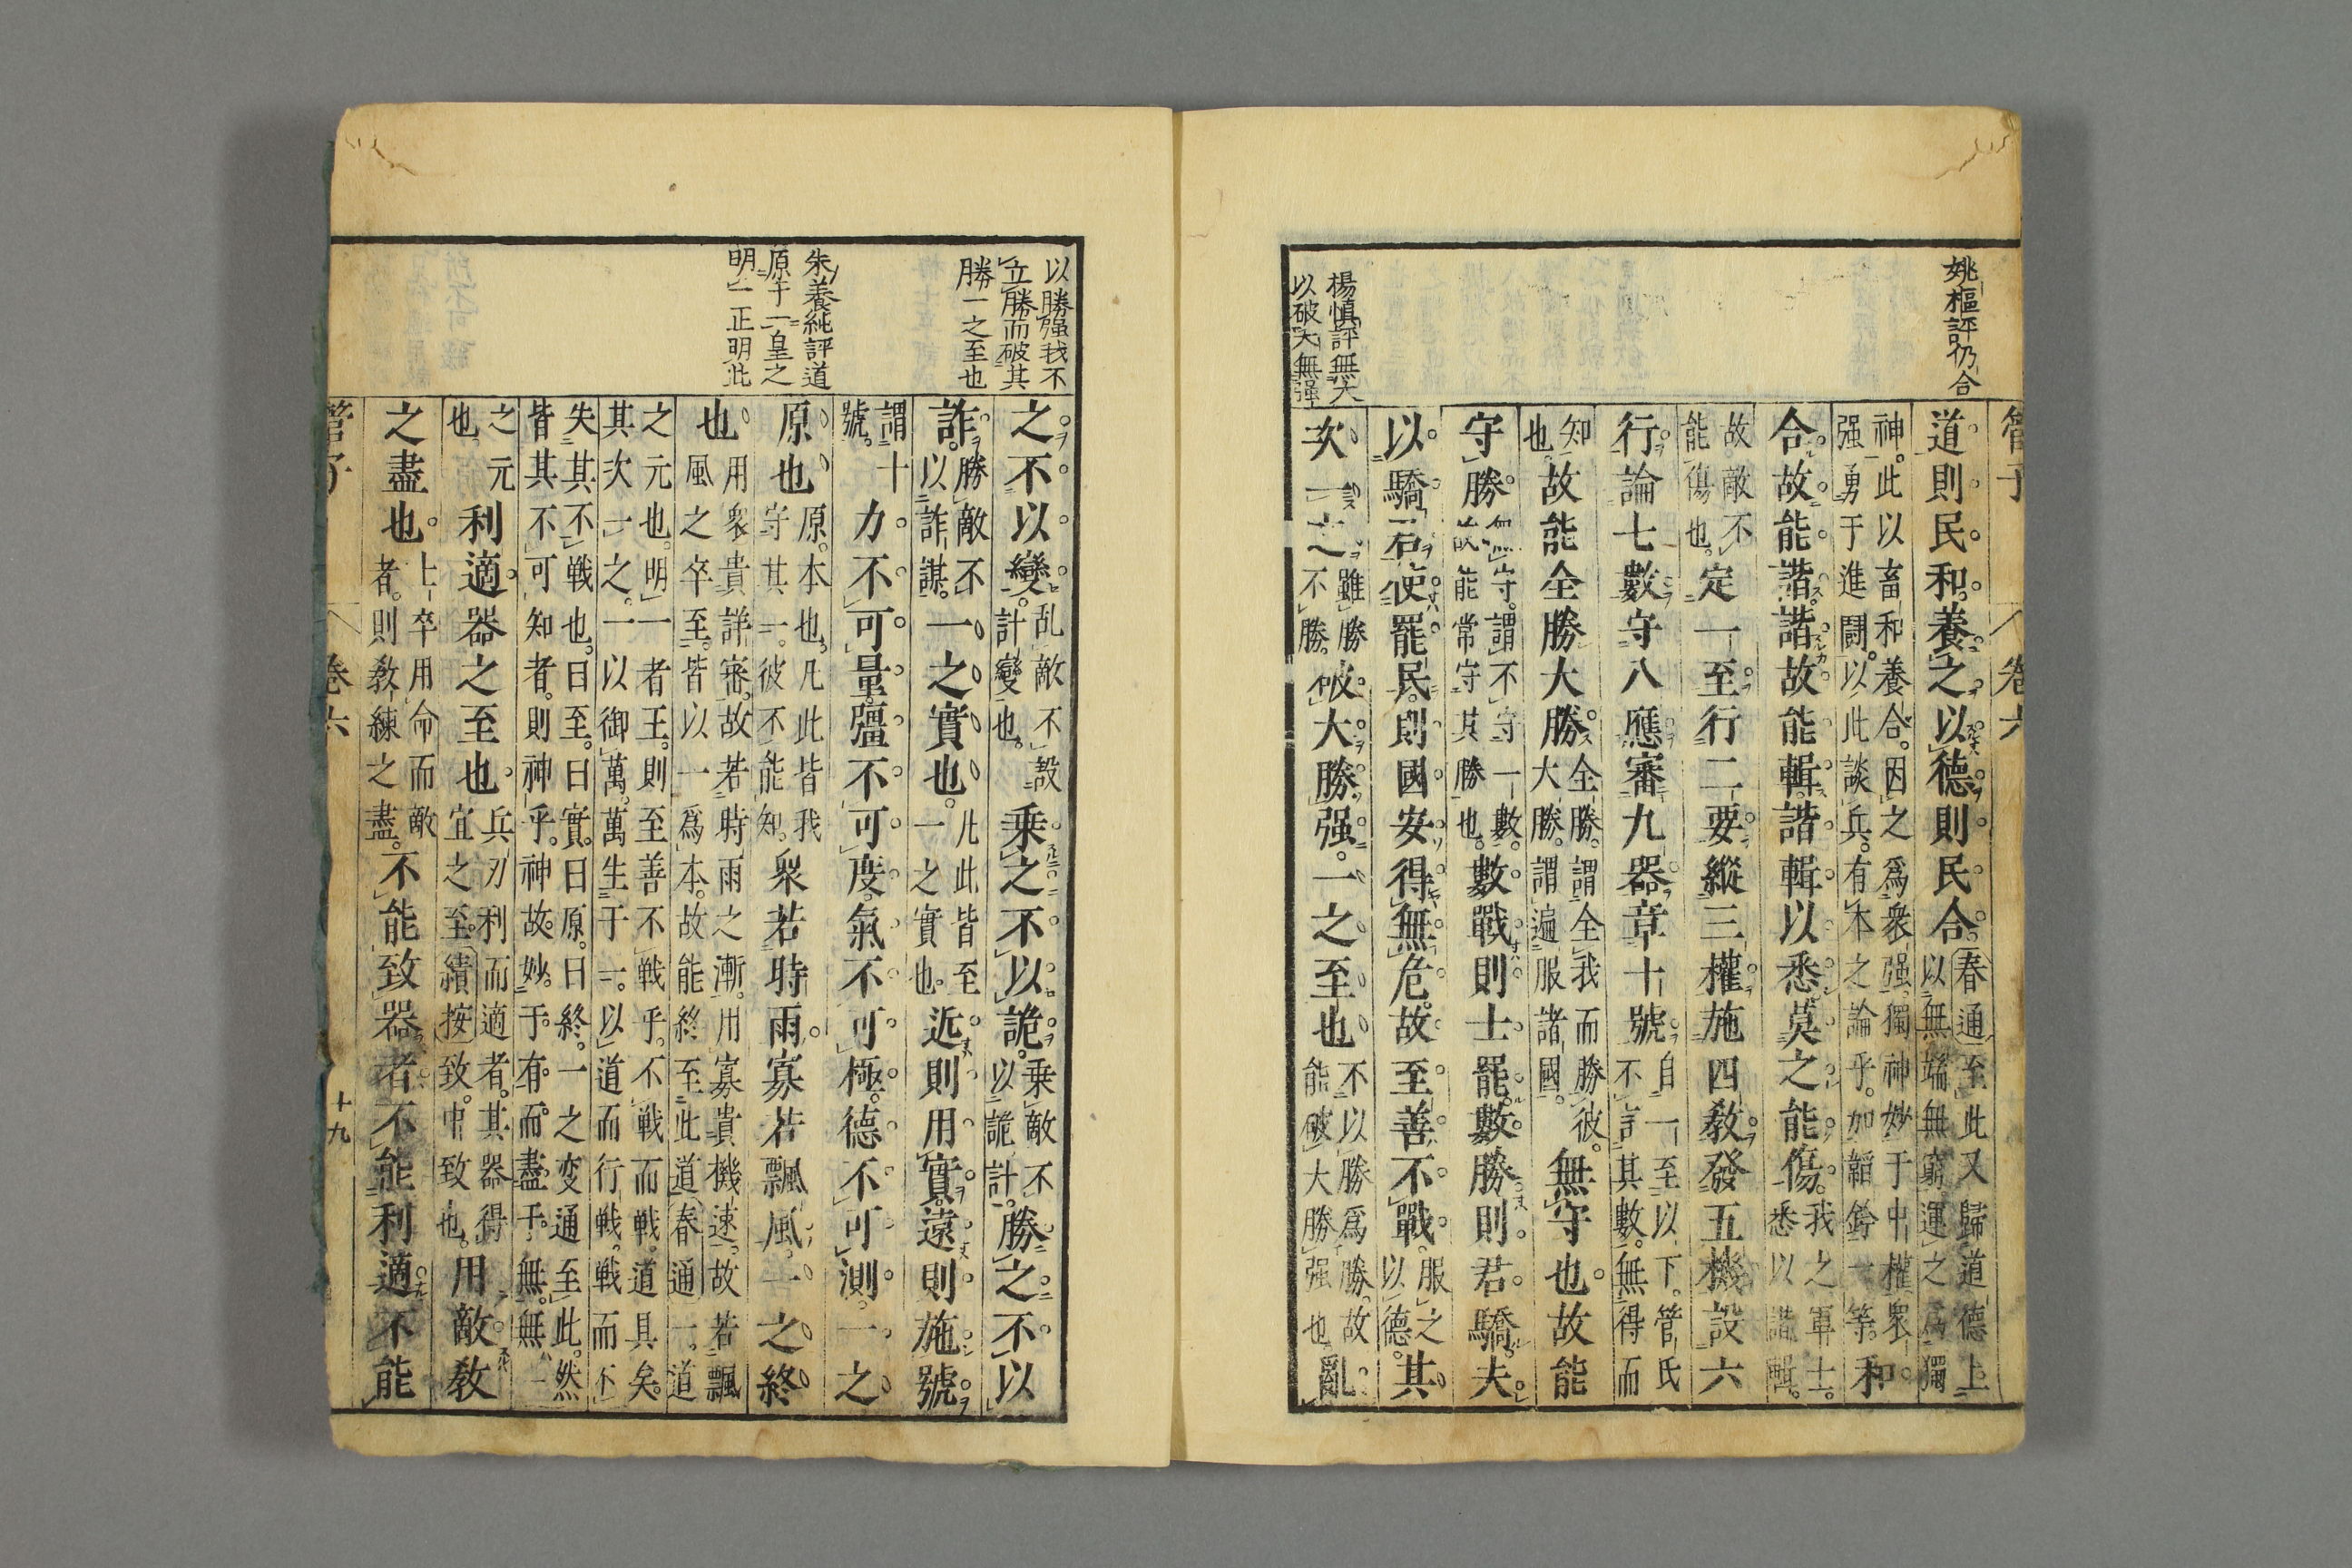 管子 卷六
姚樞評仍合
道則民和養之以德則民合
春通至此又歸道德上
以無端無窮運之爲獨
神此以畜和養合因之爲衆强獨神妙于中權衆
强勇于進闘以此談兵有本之論乎加韜鈐一等
和
合故能諧諧故能輯諧輯以悉莫之能傷
我之軍士
悉以諧輯
故敵不
能傷也
定一至行二要縱三權施四教發五機設六
行論七數守八應審九器章十號
自一至以下管氏
不言其數無得而
知
也
故能全勝大勝
全勝謂全我而勝彼
大勝謂遍服諸國
無守也故能
守勝
無守謂不守一數
故能常守其勝也
數戰則士罷數勝則君驕夫
以驕君使罷民則國安得無危故至善不戰
服之
以德
其
楊慎評無大
以破大無强
次一之
雖勝
不勝
破大勝强一之至也
不以勝爲勝故
能破大勝强也
亂
以勝强我不
立勝而破其
勝一之至也
之不以變
乱敵不設
計變也
乘之不以詭
乘敵不
以詭計
勝之不以
詐
勝敵不
以詐謀
一之實也
凡此皆至
一之實也
近則用實遠則施號
謂十
號
力不可量彊不可度氣不可極德不可測一之
朱養純評道
原于一皇之
明一正明此
原也
原本也凡此皆我
守其一彼不能知
衆若時雨寡若飄風一之終
也
用衆貴詳審故若時雨之漸用寡貴機速故若飄
風之卒至皆以一爲本故能終至此道春通一道
之元也明一者王則至善不戰乎不戰而戰道具矣
其次一之一以御萬萬生于一以道而行戰戰而不
失其不戰也曰至曰實曰原曰終一之変通至此然
皆其不可知者則神乎神故妙于有而盡于無無一
之元
也
利適器之至也
兵刃利而適者其器得
宜之至績按致中致也
用敵教
之盡也
士卒用命而敵
者則教練之盡
不能致器者不能利適不能
管子 卷六 十九